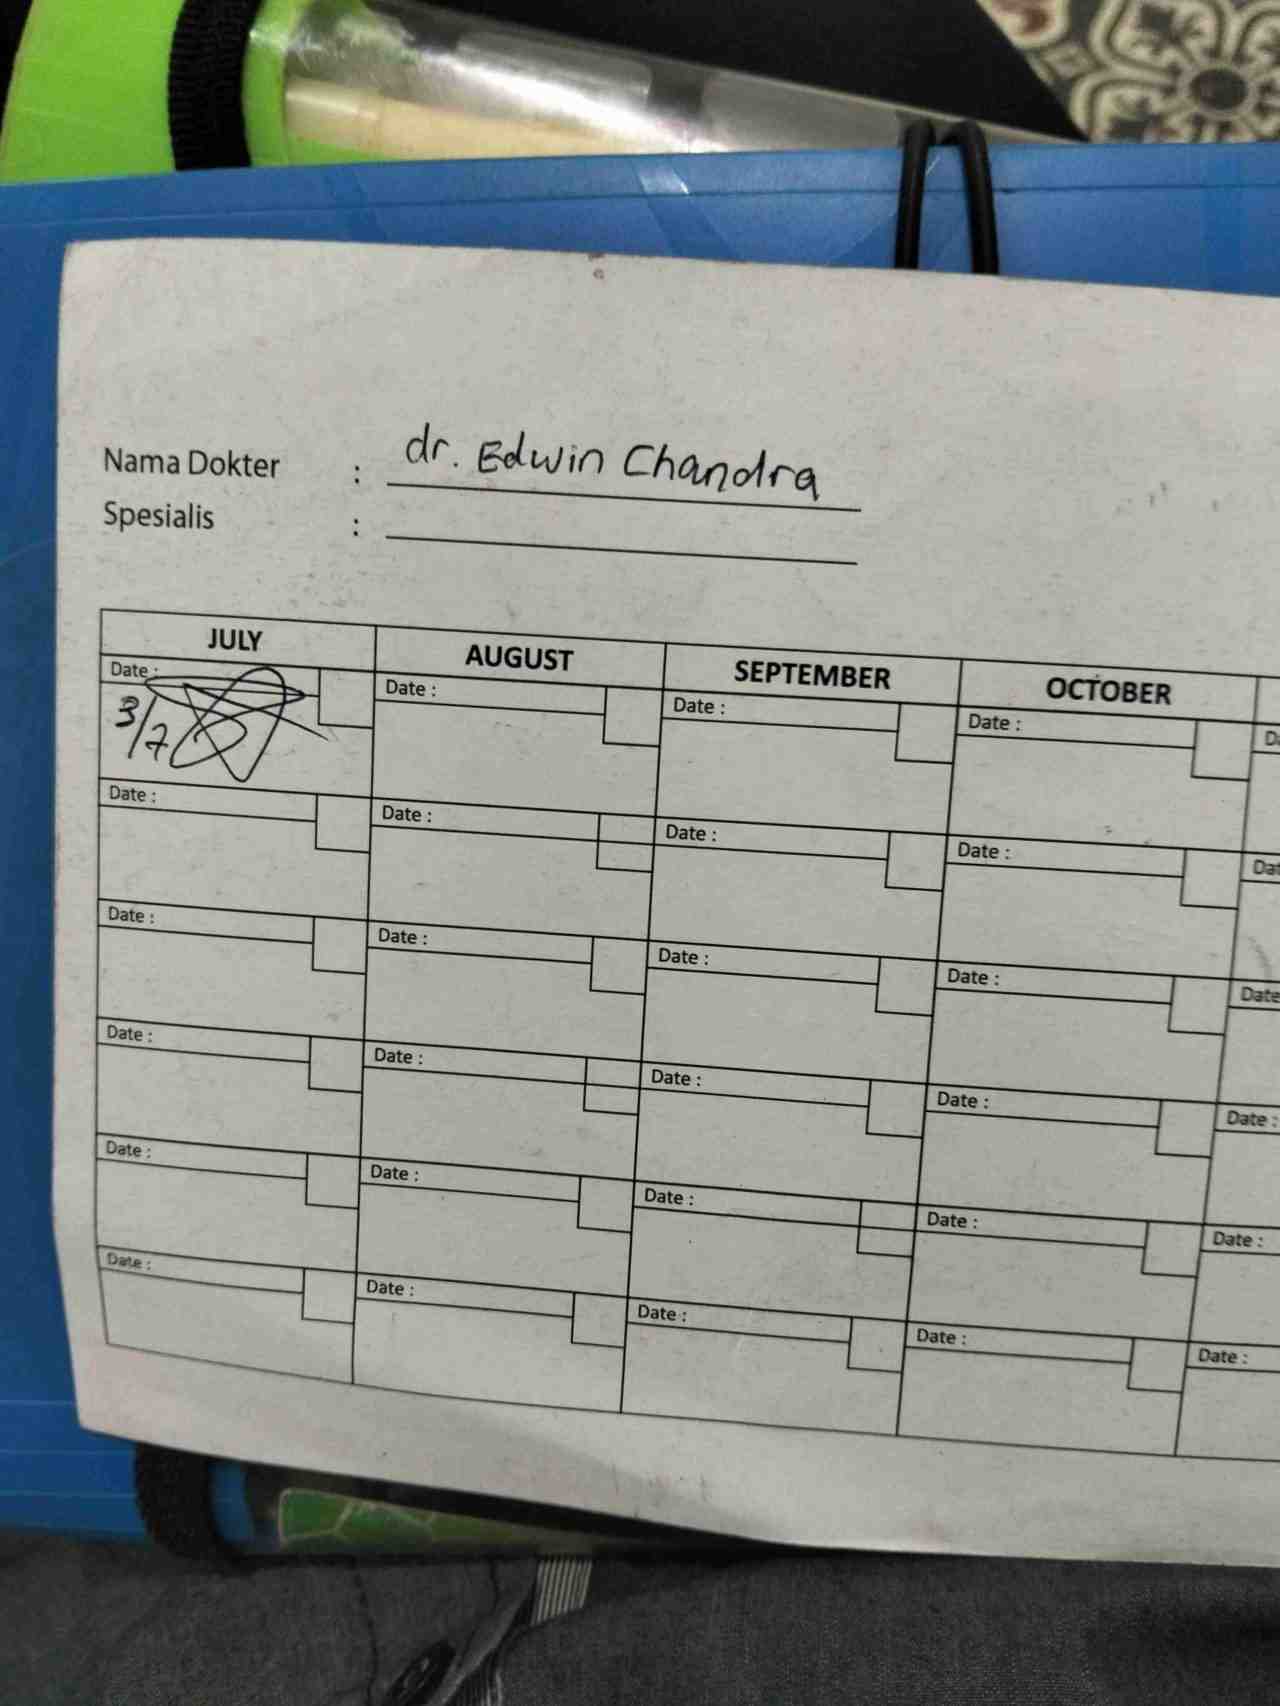 Nama Dokter : dr. Edwin Chandra
Spesialis :
JULY AUGUST SEPTEMBER OCTOBER
Date : Date : Date : Date : Da
3/7
Date : Date : Date : Date : Dat
Date : Date : Date : Date : Date
Date : Date : Date : Date : Date :
Date : Date : Date : Date : Date :
Date : Date : Date : Date : Date :